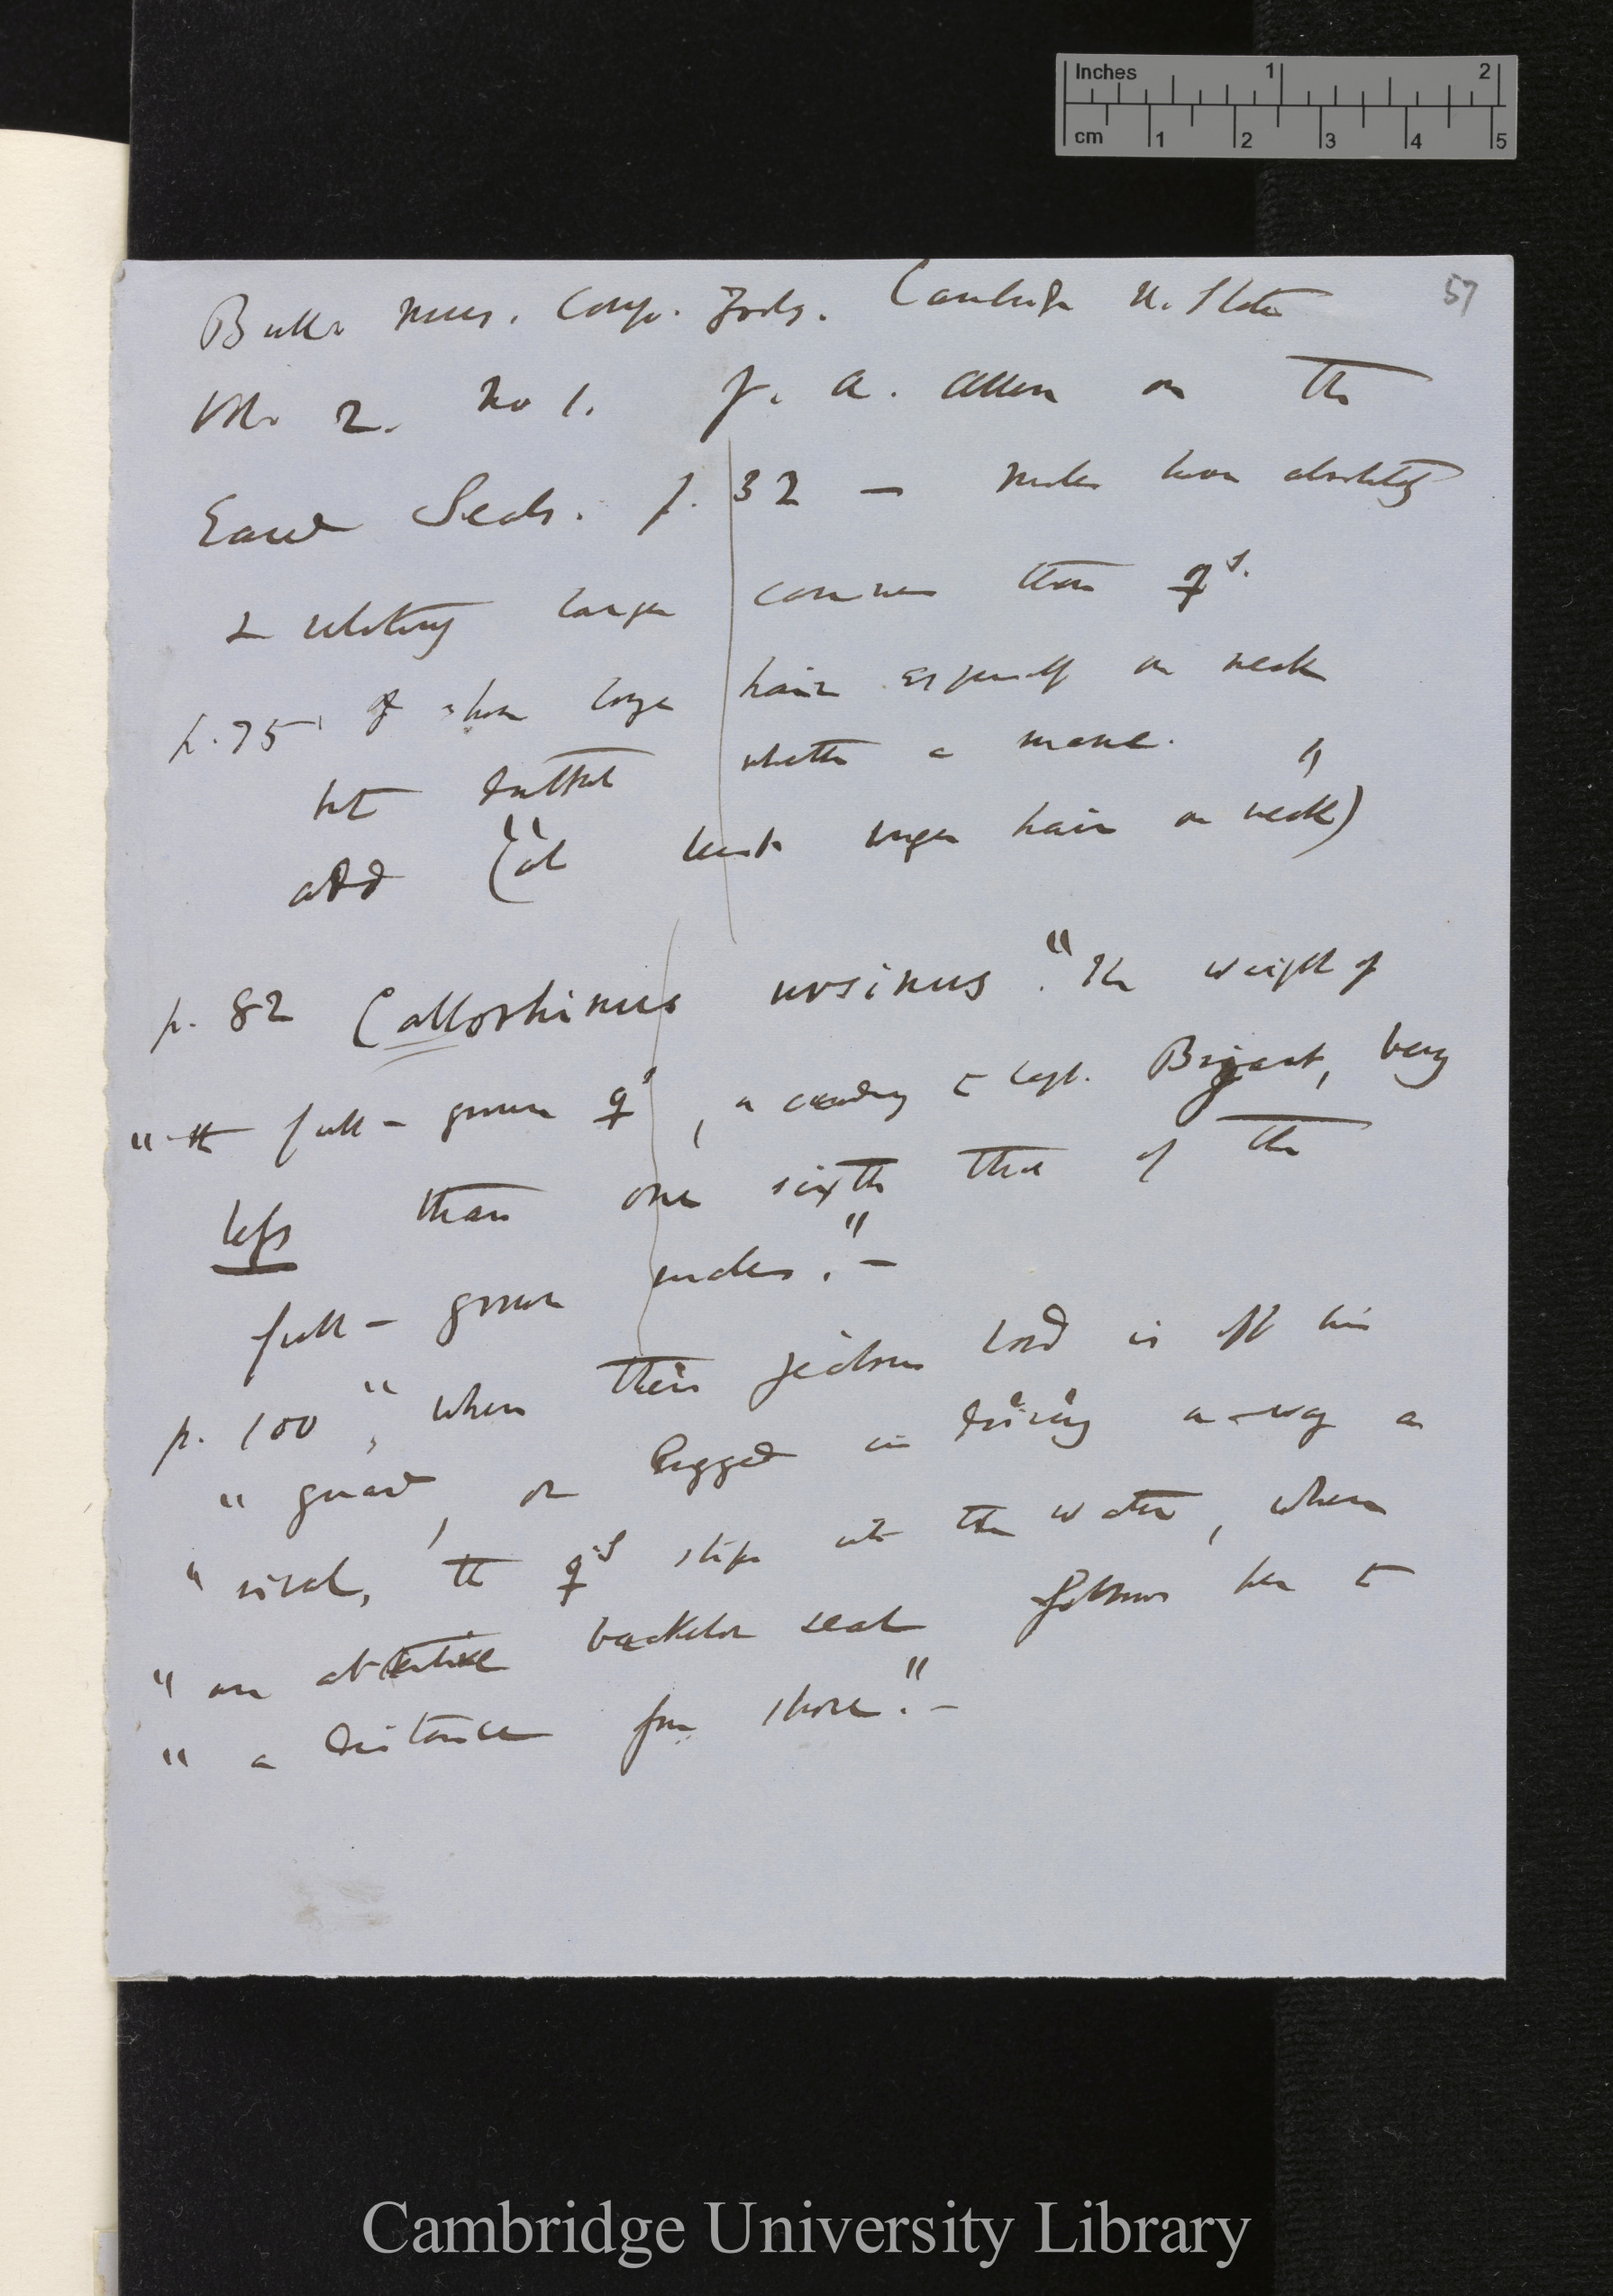 Inches 1 2
cm 1 2 3 4 5
57
Bull. Mus. Comp. Zoolog. Cambridge U. States
Vol. 2. No 1. J. A. Allen on the
Eared Seals. p. 32 — males have absolutely
& relatively larger canines than ♀s.
p. 75 of longer hair especially on neck
but doubtful whether a mane.
add ("at least longer hair on neck")
p. 82 Callorhinus ursinus. "The weight of
"the full-grown ♀s, according to Capt. Bryant, being
less than one sixth that of the
full-grown males."—
p. 100, "when their jealous lord is off his
" guard, or engaged in driving away a
" rival, the ♀s slips into the water, when
" an attentive bachelor seal follows her to
" a distance from shore."—
Cambridge University Library